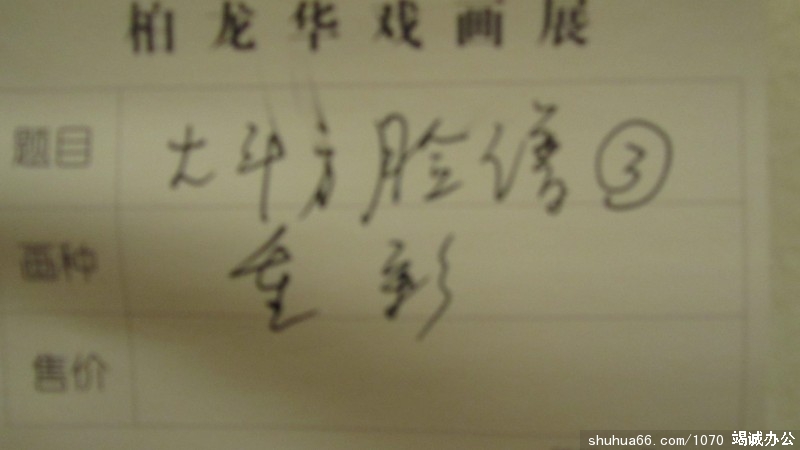 柏龙华戏画展
题目 大斗方脸谱③
画种 重彩
售价
shuhua66.com/1070 竭诚办公